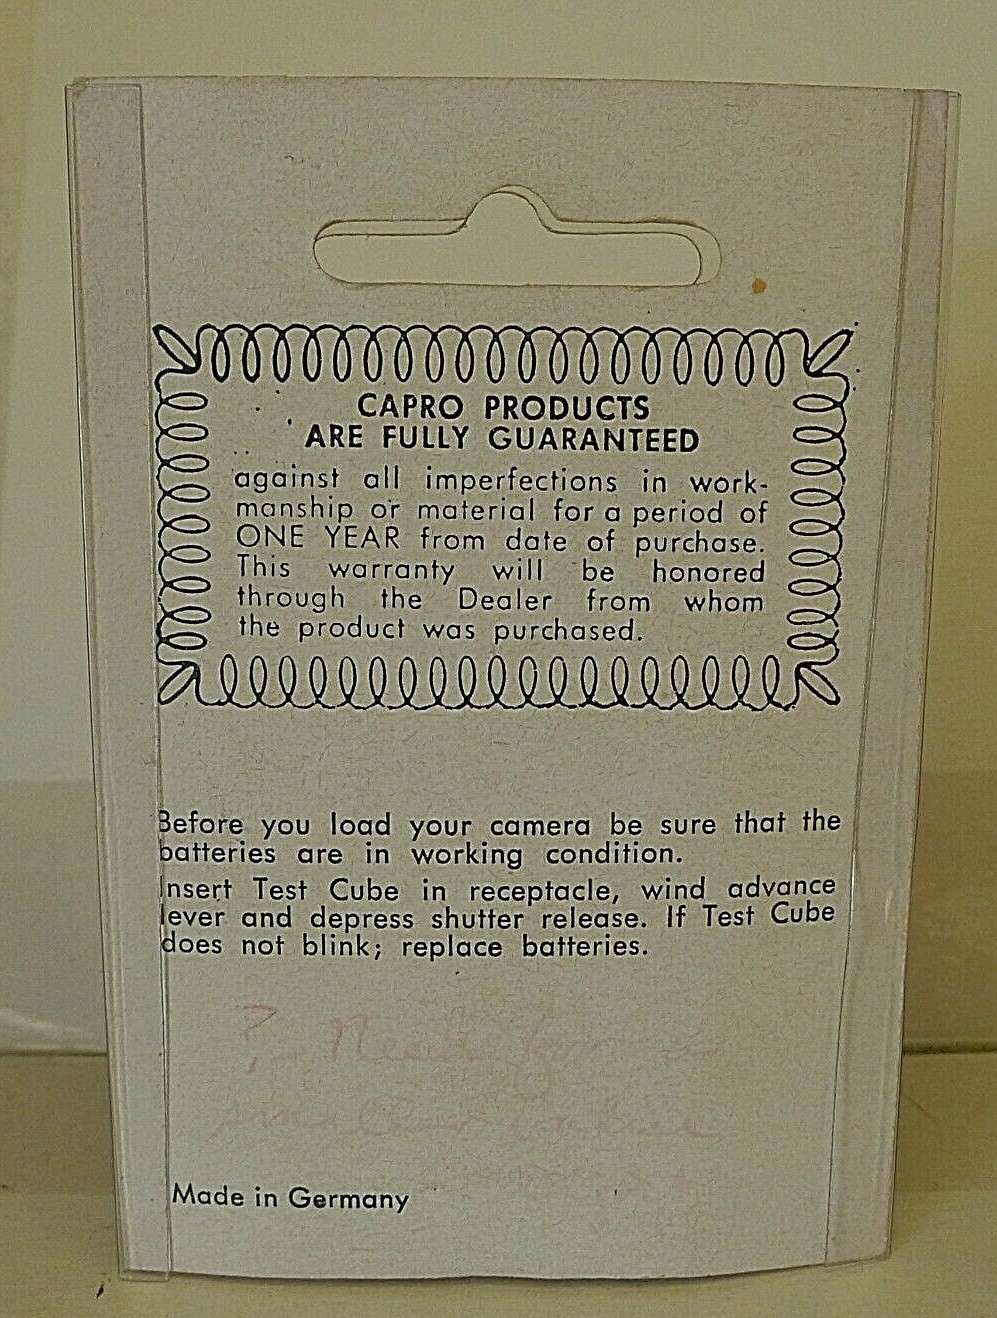 CAPRO PRODUCTS
ARE FULLY GUARANTEED
against all imperfections in work-
manship or material for a period of
ONE YEAR from date of purchase.
This warranty will be honored
through the Dealer from whom
the product was purchased.
Before you load your camera be sure that the
batteries are in working condition.
Insert Test Cube in receptacle, wind advance
lever and depress shutter release. If Test Cube
does not blink; replace batteries.
?
Made in Germany